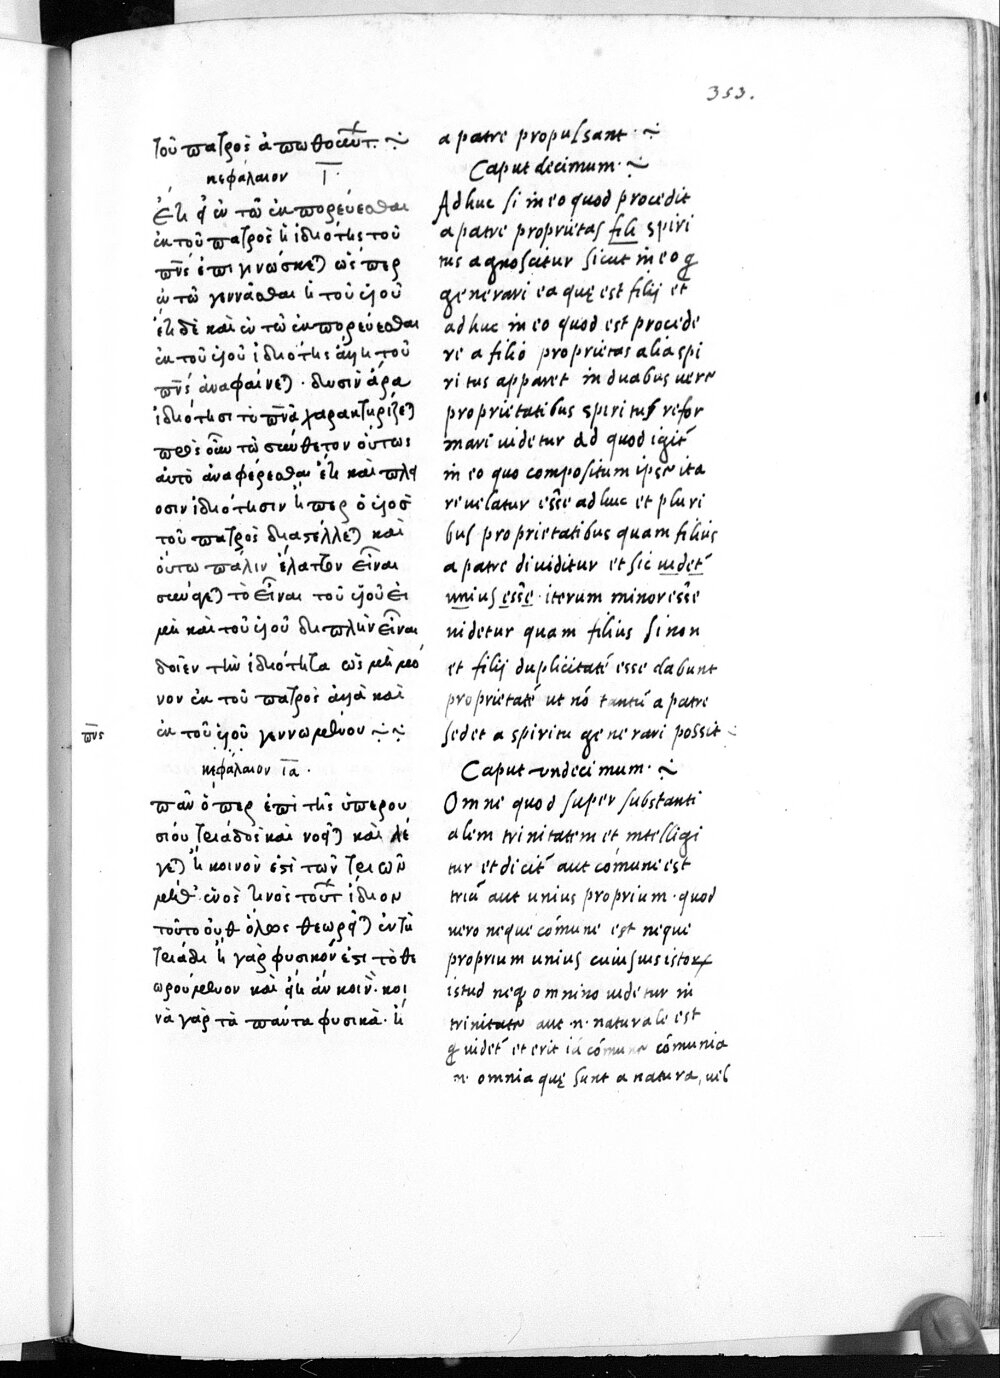 353.
τοῦ πατρὸς ἀπωθοῦντ.
κεφάλαιον ῑ.
ἔτι εἰ ἐν τῶ ἐκπορεύεσθαι
ἐκ τοῦ πατρὸς ἡ ἰδιότης τοῦ
πν̅ς ἐπιγινώσκε) ὥσπερ
ἐν τῶ γεννᾶσθαι ἡ τοῦ υἱοῦ
ἔτι δὲ καὶ ἐν τῶ ἐκπορεύεσθαι
ἐκ τοῦ υἱοῦ ἰδιότης ἄλλη τοῦ
πν̅ς ἀναφαίνε). δυσὶν ἄρα
ἰδιότησι τὸ πν̅α χαρακτηρίζε)
πρὸς οὖν τὸ σύνθετον οὕτως
αὐτὸ ἀναφέρεσθαι ἔτι καὶ πλεί
οσιν ἰδιότησιν ἤπερ ὁ υἱὸς
τοῦ πατρὸς διαστέλλε) καὶ
οὕτω πάλιν ἔλαττον εἶναι
τὸ εἶναι τοῦ υἱοῦ εἰ
μὴ καὶ τοῦ υἱοῦ διπλὴν εἶναι
δοῖεν τὴν ἰδιότητα ὡς μὴ μό
νον ἐκ τοῦ πατρὸς ἀλλὰ καὶ
πν̅ς
ἐκ τοῦ υἱοῦ γεννωμένου
κεφάλαιον ῑα.
πᾶν ὅπερ ἐπὶ τῆς ὑπερου
σίου τριάδος καὶ νοεῖ) καὶ λέ
γε) ἢ κοινὸν ἐστὶ τῶν τριῶν
ἑνὸς τινὸς τούτ ἴδιον
τοῦτο οὐθ ὅλως θεωρεῖ) ἐν τῆ
τριάδι ἢ γὰρ φυσικόν ἐστι τὸ θε
ωρούμενον καὶ ἔτι ἂν κοιν. κοι
νὰ γὰρ τὰ πάντα φυσικὰ. ἢ
a patre propulsant.
Caput decimum.
Adhuc si in eo quod procedit
a patre proprietas fili spiri
tus agnoscitur sicut in eo q
generari ea quę est filij et
adhuc in eo quod est procede
re a filio proprietas alia spi
ritus apparet in duabus uere
proprietatibus spiritus refor
mari uidetur ad quod igit̃
in eo quo compositum ipse ita
reuelatur ess̃e adhuc et pluri
bus proprietatibus quam filius
a patre diuiditur et sic uidet̃
unius ess̃e. iterum minor ess̃e
uidetur quam filius si non
et filij duplicitatẽ esse dabunt
proprietatẽ ut nõ tantũ a patre
sed et a spiritu generari possit
Caput undecimum.
Omne quod super substanti
alem trinitatem et intelligi
tur et dicit̃ aut cõmune est
triũ aut unius proprium. quod
uero neque cõmune est neque
proprium unius cuiusuis istoꝝ
istud neq omnino uidetur in
trinitate aut n. naturale est
q uidet̃ et erit iã cõmune cõmunia
n. omnia quę sunt a natura, uel